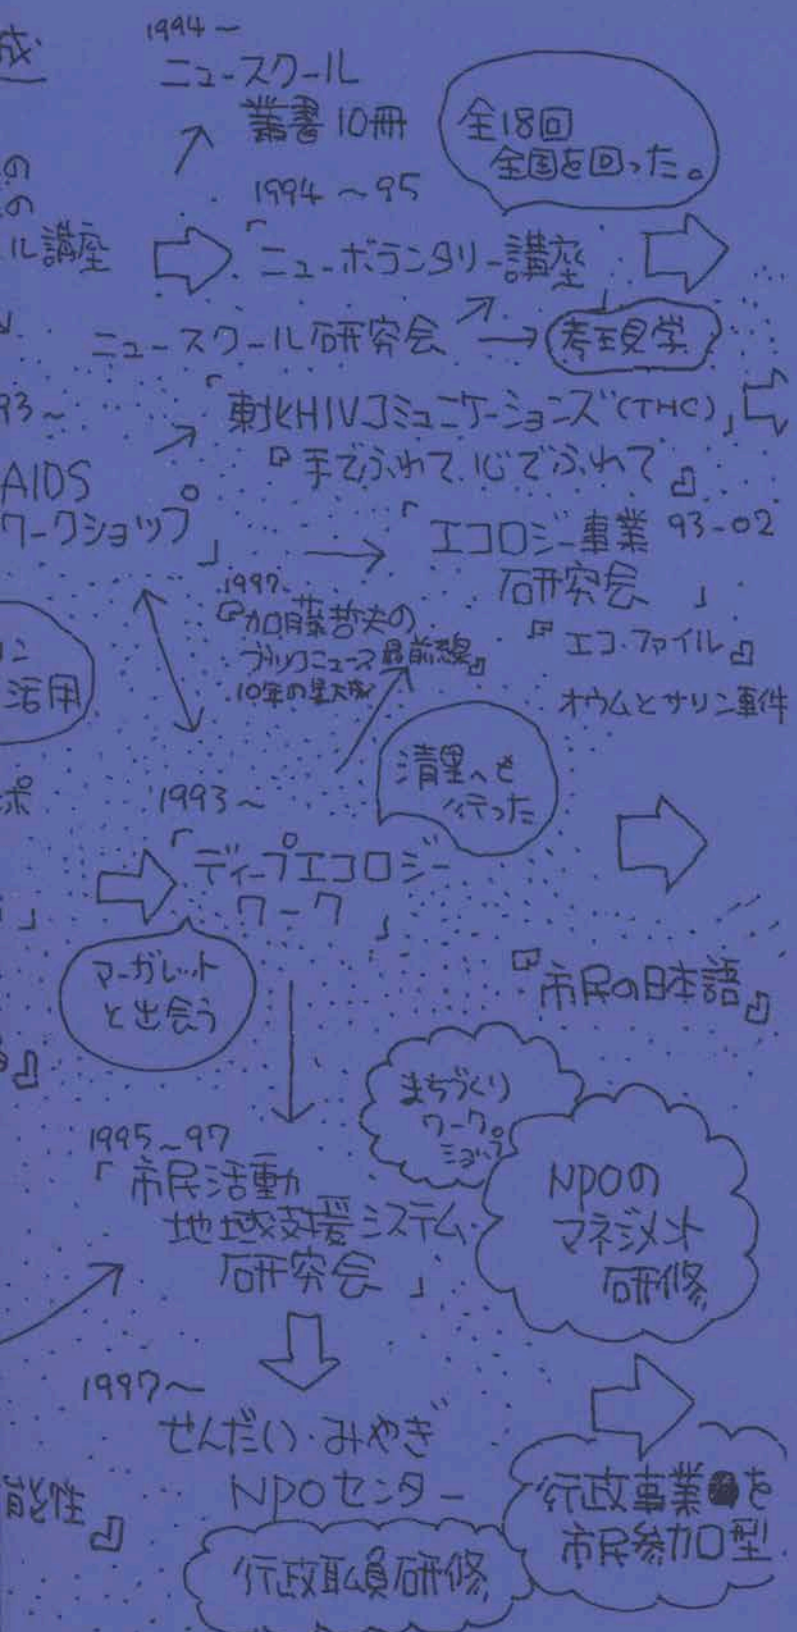 成
1994～
ニュースクール
叢書10冊
全18回
全国を回った。
の
の
ル講座
1994～95
「ニューボランタリー講座
ニュースクール研究会
考現学
93～
AIDS
ワークショップ」
「東北HIVコミュニケーションズ(THC)」
『手でふれて心でふれて』
「エコロジー事業 93-02
研究会」
『エコ・ファイル』
オウムとサリン事件
1997
『加藤哲夫の
ブックニュース最前線』
10年の集大成
活用
清里へも
行った
ポ
1993～
「ディープエコロジー
ワーク」
」
マーガレット
と出会う
『市民の日本語』
』
まちづくり
ワーク
ショップ
1995～97
「市民活動
地域支援システム
研究会」
NPOの
マネジメント
研修
1997～
せんだい・みやぎ
NPOセンター
能性』
行政職員研修
行政事業を
市民参加型